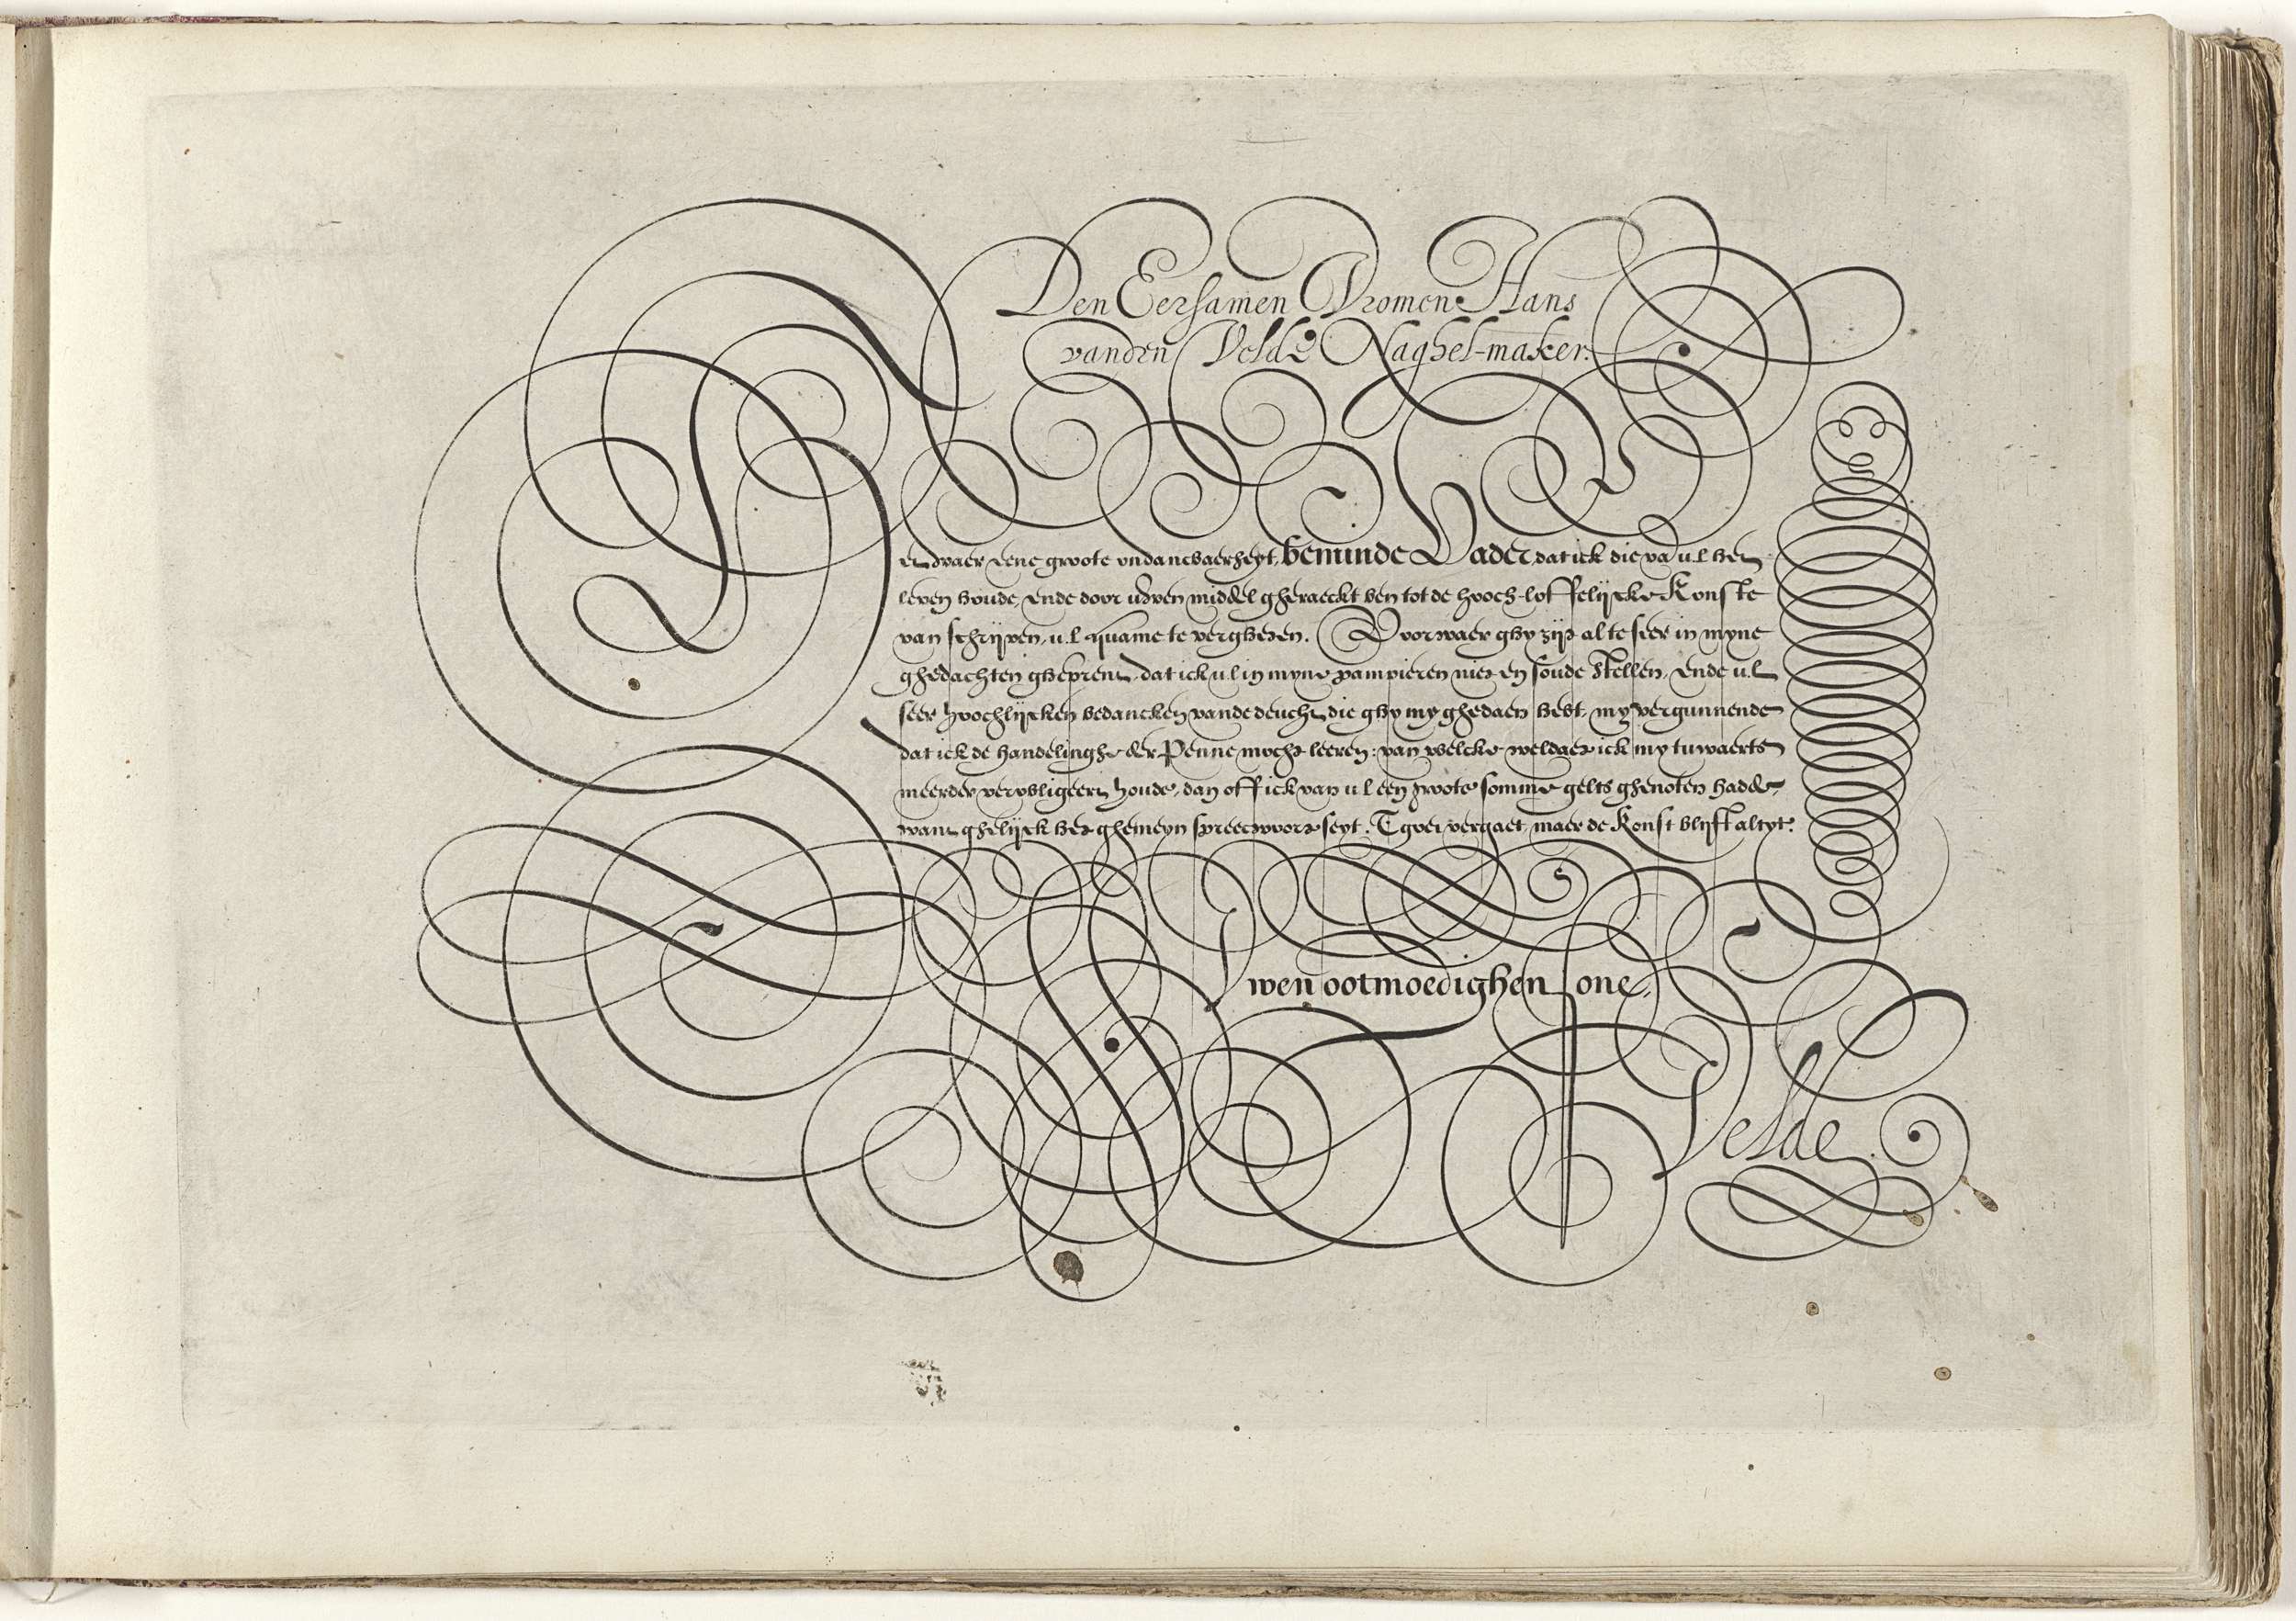 Den Eersamen Vromen Hans
vanden Velde Naghel-maker.
Het waer eene groote ondancbaerheyt, beminde Vader, dat ick die va u.l. het
leven houde, ende door uwen middel gheraeckt ben tot de hooch-loffelijcke Konste
van schrijven, u.l. quame te vergheten. Voorwaer ghy zijt al te seer in myne
ghedachten gheprent, dat ick u.l in myne pampieren niet en soude stellen, ende u.l
seer hoochlijcken bedancken vande deucht, die ghy my ghedaen hebt, my vergunnende
dat ick de handelinghe der Penne mocht leeren: van welcke weldaet ick my tuwaerts
meerder verobligeert houde, dan off ick van u.l een groote somme gelts ghenoten hadde,
want ghelijck het ghemeyn spreecwoort seyt. T goet vergaet, maer de Konst blijft altyt.
Uwen ootmoedighen sone,
Velde.